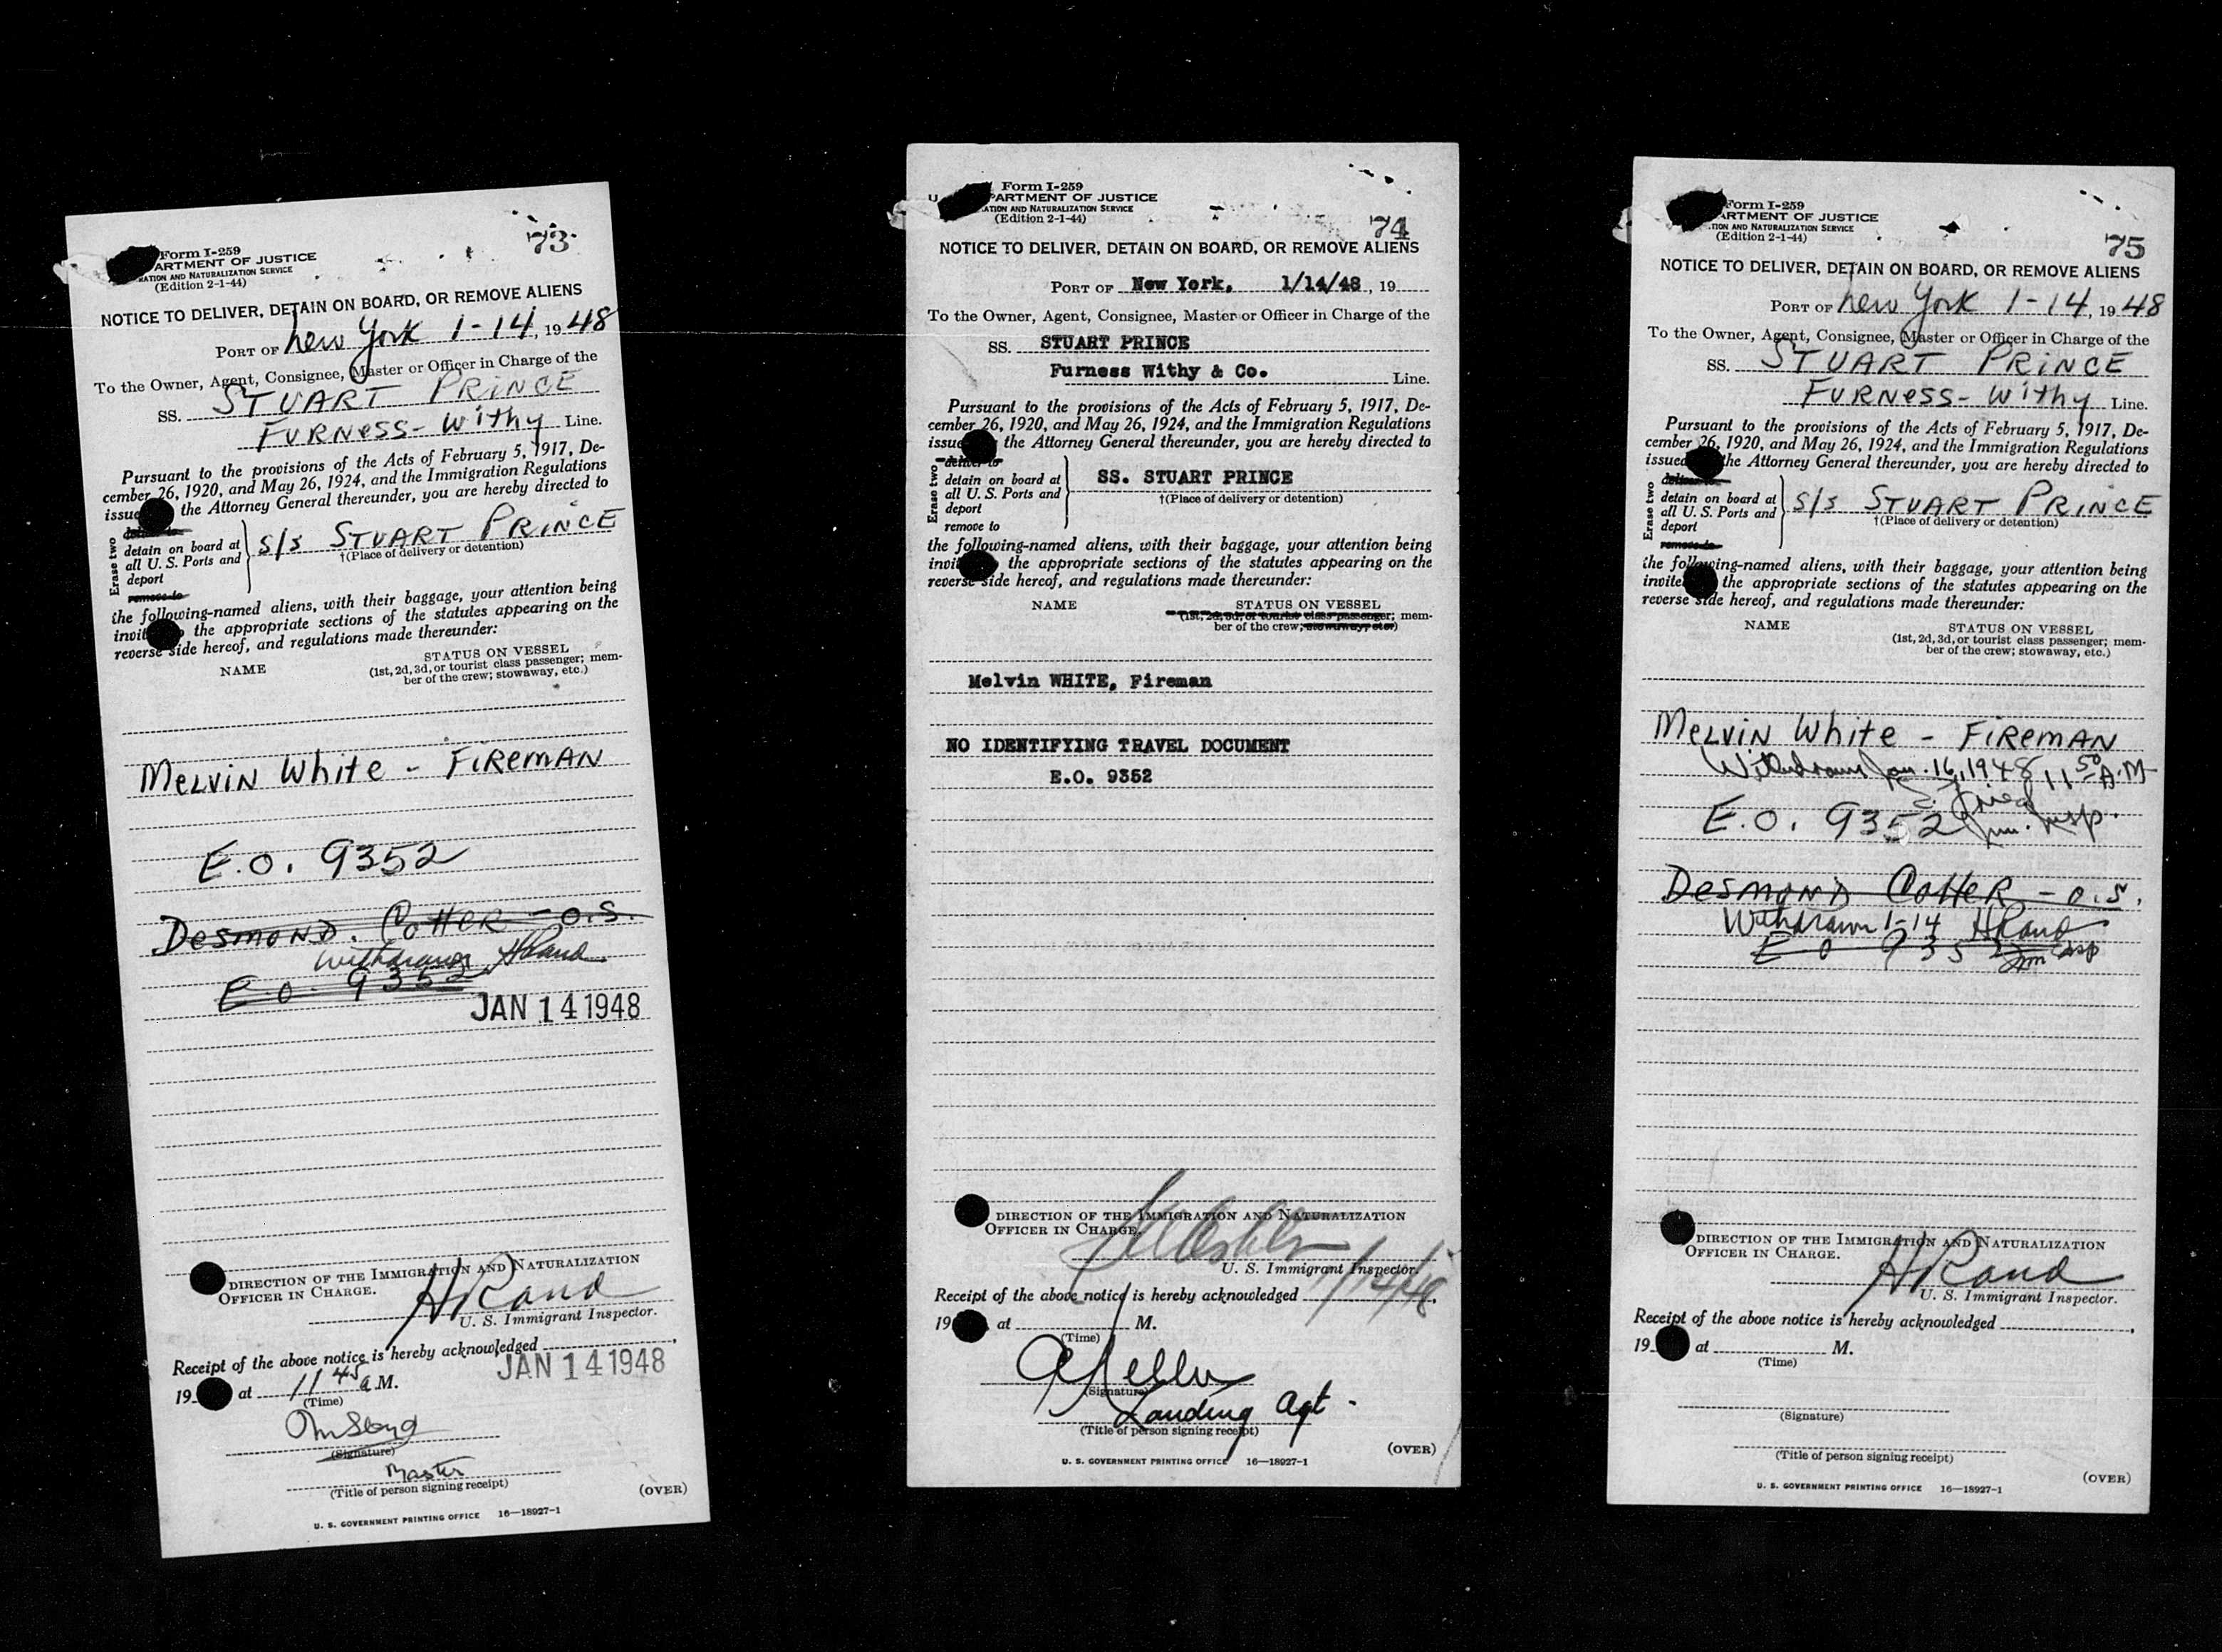 73
Form I-259
ARTMENT OF JUSTICE
RATION AND NATURALIZATION SERVICE
(Edition 2-1-44)
NOTICE TO DELIVER, DETAIN ON BOARD, OR REMOVE ALIENS
PORT OF New York 1-14, 1948
To the Owner, Agent, Consignee, Master or Officer in Charge of the
SS. STUART PRINCE
FURNESS-Withy Line.
Pursuant to the provisions of the Acts of February 5, 1917, De-
cember 26, 1920, and May 26, 1924, and the Immigration Regulations
issu the Attorney General thereunder, you are hereby directed to
Erase two
deliver to
detain on board at
all U. S. Ports and
deport
remove to
S/S STUART PRINCE
†(Place of delivery or detention)
the following-named aliens, with their baggage, your attention being
invit the appropriate sections of the statutes appearing on the
reverse side hereof, and regulations made thereunder:
NAME STATUS ON VESSEL
(1st, 2d, 3d, or tourist class passenger; mem-
ber of the crew; stowaway, etc.)
MELVIN White - FIREMAN
E.O. 9352
DESMOND. COTTER - O.S.
Withdrawn HRand
E.O. 9352
JAN 14 1948
DIRECTION OF THE IMMIGRATION AND NATURALIZATION
OFFICER IN CHARGE.
HRand
U. S. Immigrant Inspector.
Receipt of the above notice is hereby acknowledged
JAN 14 1948
19 at 11 45 a M.
(Time)
(Signature)
Master
(Title of person signing receipt)
(OVER)
U. S. GOVERNMENT PRINTING OFFICE 16—18927-1
Form I-259
U PARTMENT OF JUSTICE
ATION AND NATURALIZATION SERVICE
(Edition 2-1-44)
74
NOTICE TO DELIVER, DETAIN ON BOARD, OR REMOVE ALIENS
PORT OF New York, 1/14/48, 19
To the Owner, Agent, Consignee, Master or Officer in Charge of the
SS. STUART PRINCE
Furness Withy & Co. Line.
Pursuant to the provisions of the Acts of February 5, 1917, De-
cember 26, 1920, and May 26, 1924, and the Immigration Regulations
issu the Attorney General thereunder, you are hereby directed to
Erase two
deliver to
detain on board at
all U. S. Ports and
deport
remove to
SS. STUART PRINCE
†(Place of delivery or detention)
the following-named aliens, with their baggage, your attention being
invit the appropriate sections of the statutes appearing on the
reverse side hereof, and regulations made thereunder:
NAME STATUS ON VESSEL
(1st, 2d, 3d, or tourist class passenger; mem-
ber of the crew; stowaway, etc.)
Melvin WHITE, Fireman
NO IDENTIFYING TRAVEL DOCUMENT
E.O. 9352
DIRECTION OF THE IMMIGRATION AND NATURALIZATION
OFFICER IN CHARGE.
U. S. Immigrant Inspector.
Receipt of the above notice is hereby acknowledged 1/14/48,
19 at M.
(Time)
(Signature)
Landing Agt.
(Title of person signing receipt)
(OVER)
U. S. GOVERNMENT PRINTING OFFICE 16—18927-1
Form I-259
ARTMENT OF JUSTICE
TION AND NATURALIZATION SERVICE
(Edition 2-1-44)
75
NOTICE TO DELIVER, DETAIN ON BOARD, OR REMOVE ALIENS
PORT OF New York 1-14, 1948
To the Owner, Agent, Consignee, Master or Officer in Charge of the
SS. STUART PRINCE
FURNESS-Withy Line.
Pursuant to the provisions of the Acts of February 5, 1917, De-
cember 26, 1920, and May 26, 1924, and the Immigration Regulations
issued the Attorney General thereunder, you are hereby directed to
Erase two
deliver to
detain on board at
all U. S. Ports and
deport
remove to
S/S STUART PRINCE
†(Place of delivery or detention)
the following-named aliens, with their baggage, your attention being
invite the appropriate sections of the statutes appearing on the
reverse side hereof, and regulations made thereunder:
NAME STATUS ON VESSEL
(1st, 2d, 3d, or tourist class passenger; mem-
ber of the crew; stowaway, etc.)
MELVIN White - FIREMAN
Withdrawn Jan. 16, 1948 11 50 A.M
E.O. 9352 Imm. Insp.
DESMOND COTTER - O.S.
Withdrawn 1-14 HRand
E O 9352 Imm Insp
DIRECTION OF THE IMMIGRATION AND NATURALIZATION
OFFICER IN CHARGE.
HRand
U. S. Immigrant Inspector.
Receipt of the above notice is hereby acknowledged
19 at M.
(Time)
(Signature)
(Title of person signing receipt)
(OVER)
U. S. GOVERNMENT PRINTING OFFICE 16—18927-1